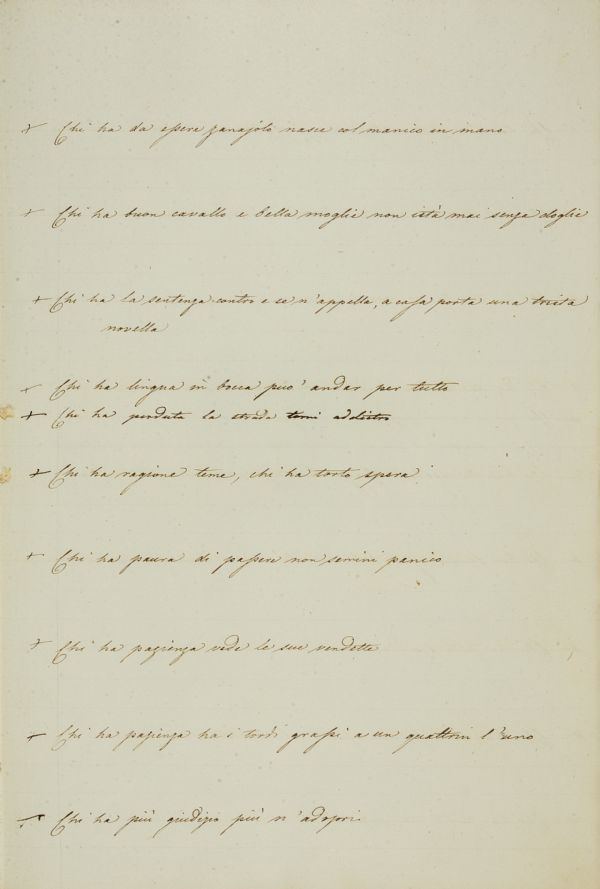 + Chi ha da essere zanajolo nasce col manico in mano
+ Chi ha buon cavallo e bella moglie non istà mai senza doglie
+ Chi ha la sentenza contro e se n'appella, a casa porta una trista
novella
+ Chi ha lingua in bocca può andar per tutto
+ Chi ha perduta la strada torni addietro
+ Chi ha ragione teme, chi ha torto spera
+ Chi ha paura di passere non semini panico
+ Chi ha pazienza vede le sue vendette
+ Chi ha pazienza ha i tordi grassi a un quattrin l'uno
+ Chi ha più giudizio più n'adopri